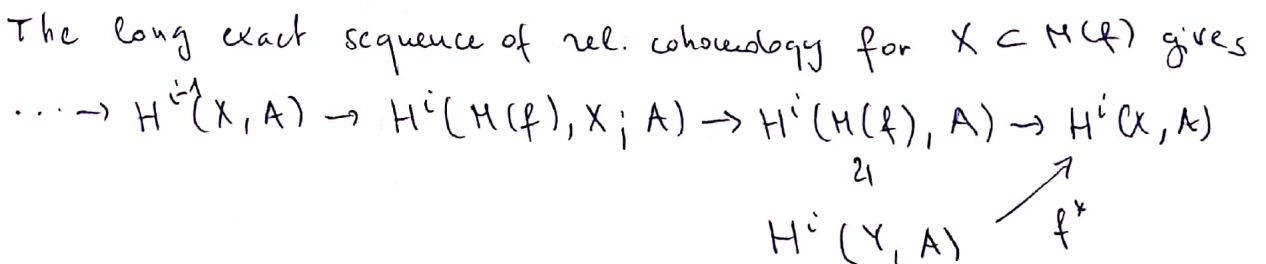 The long exact sequence of rel. cohomology for X ⊂ M(f) gives
... → H^{i-1}(X, A) → H^i(M(f), X; A) → H^i(M(f), A) → H^i(X, A)
≅
H^i(Y, A) ↗ f^*